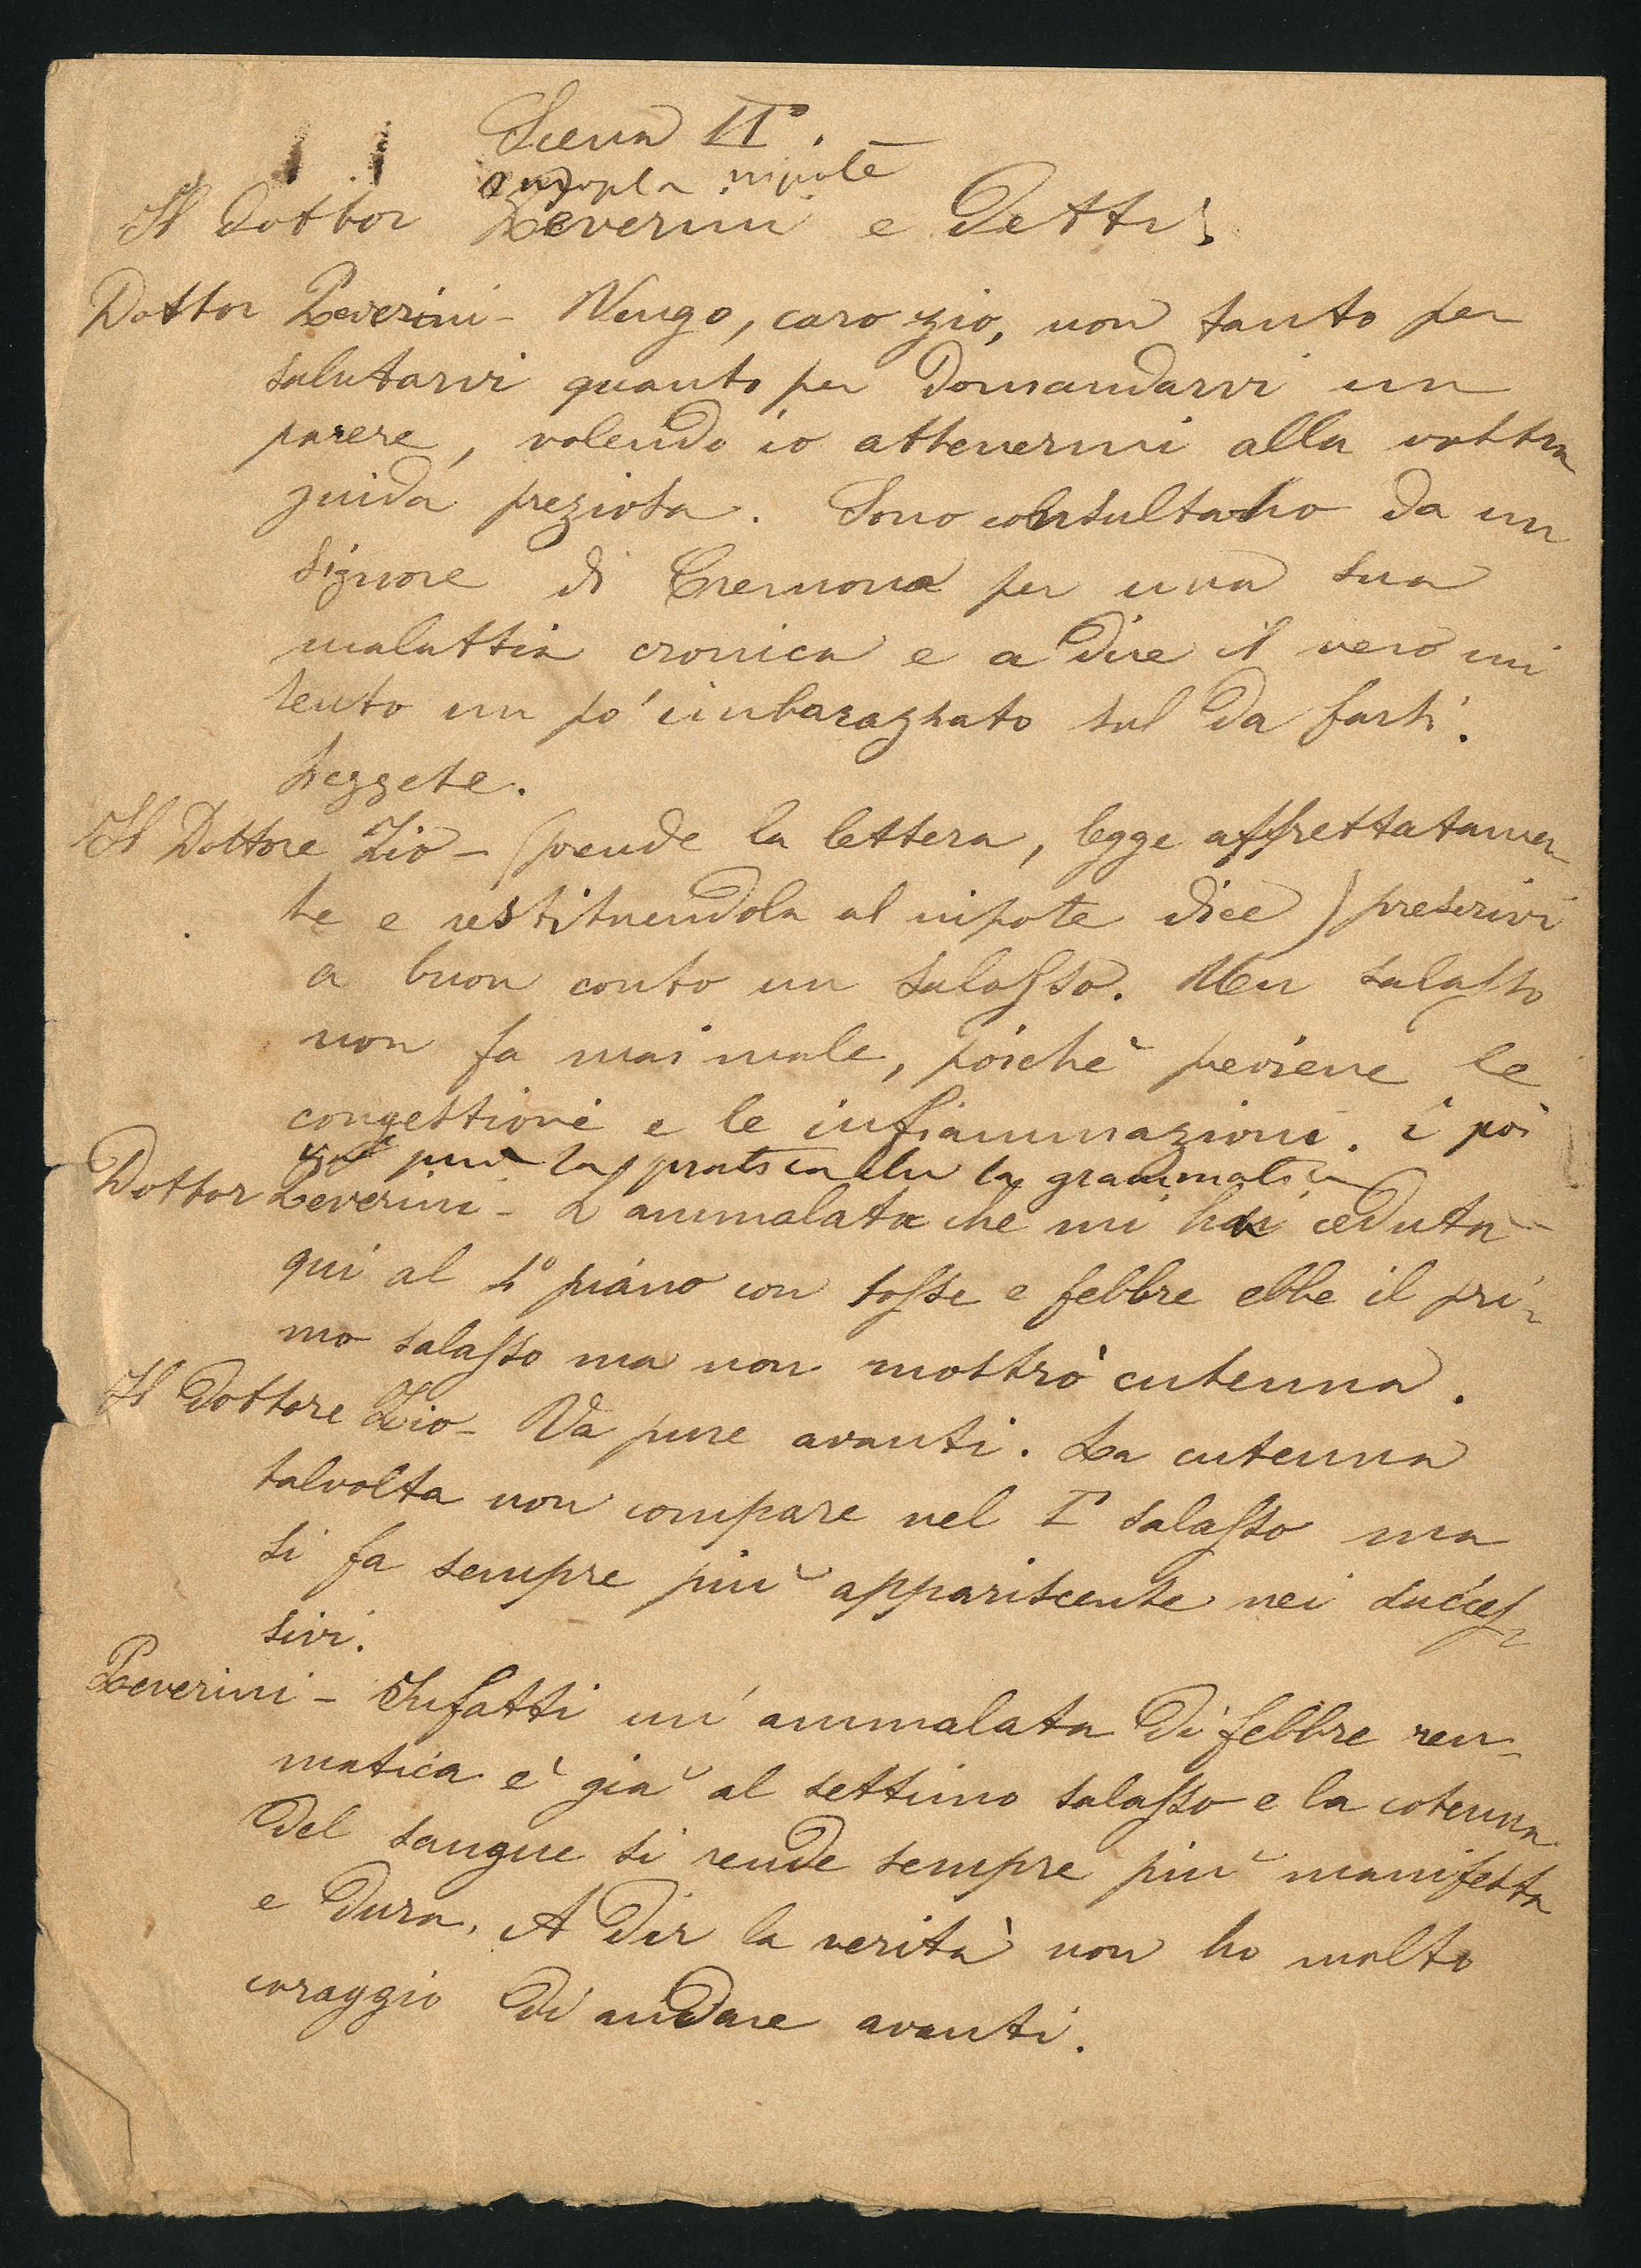 Scena II.ª
nipote
Il Dottor Zeverini e Detti.
Dottor Zeverini - Vengo, caro zio, non tanto per
salutarvi quanto per domandarvi un
parere, volendo io attenermi alla vostra
guida preziosa. Sono consultato da un
Signore di Cremona per una sua
malattia cronica e a dire il vero mi
sento un po' imbarazzato sul da farsi.
Leggete.
Il Dottore Zio - (prende la lettera, legge affrettatamen
te e restituendola al nipote dice) prescrivi
a buon conto un salasso. Un salasso
non fa mai male, poichè previene le
congestioni e le infiammazioni. E poi
più la pratica che la grammatica
Dottor Zeverini - L'ammalata che mi ha ceduta
qui al 1º piano con tosse e febbre ebbe il pri-
mo salasso ma non mostrò cutenna.
Il Dottore Zio - Va pure avanti. La cutenna
talvolta non compare nel Iº salasso ma
si fa sempre più appariscente nei succes-
sivi.
Zeverini - Infatti un'ammalata di febbre reu-
matica è già al settimo salasso e la cotenna
del sangue si rende sempre più manifesta
e dura. A dir la verità non ho molto
coraggio di andare avanti.